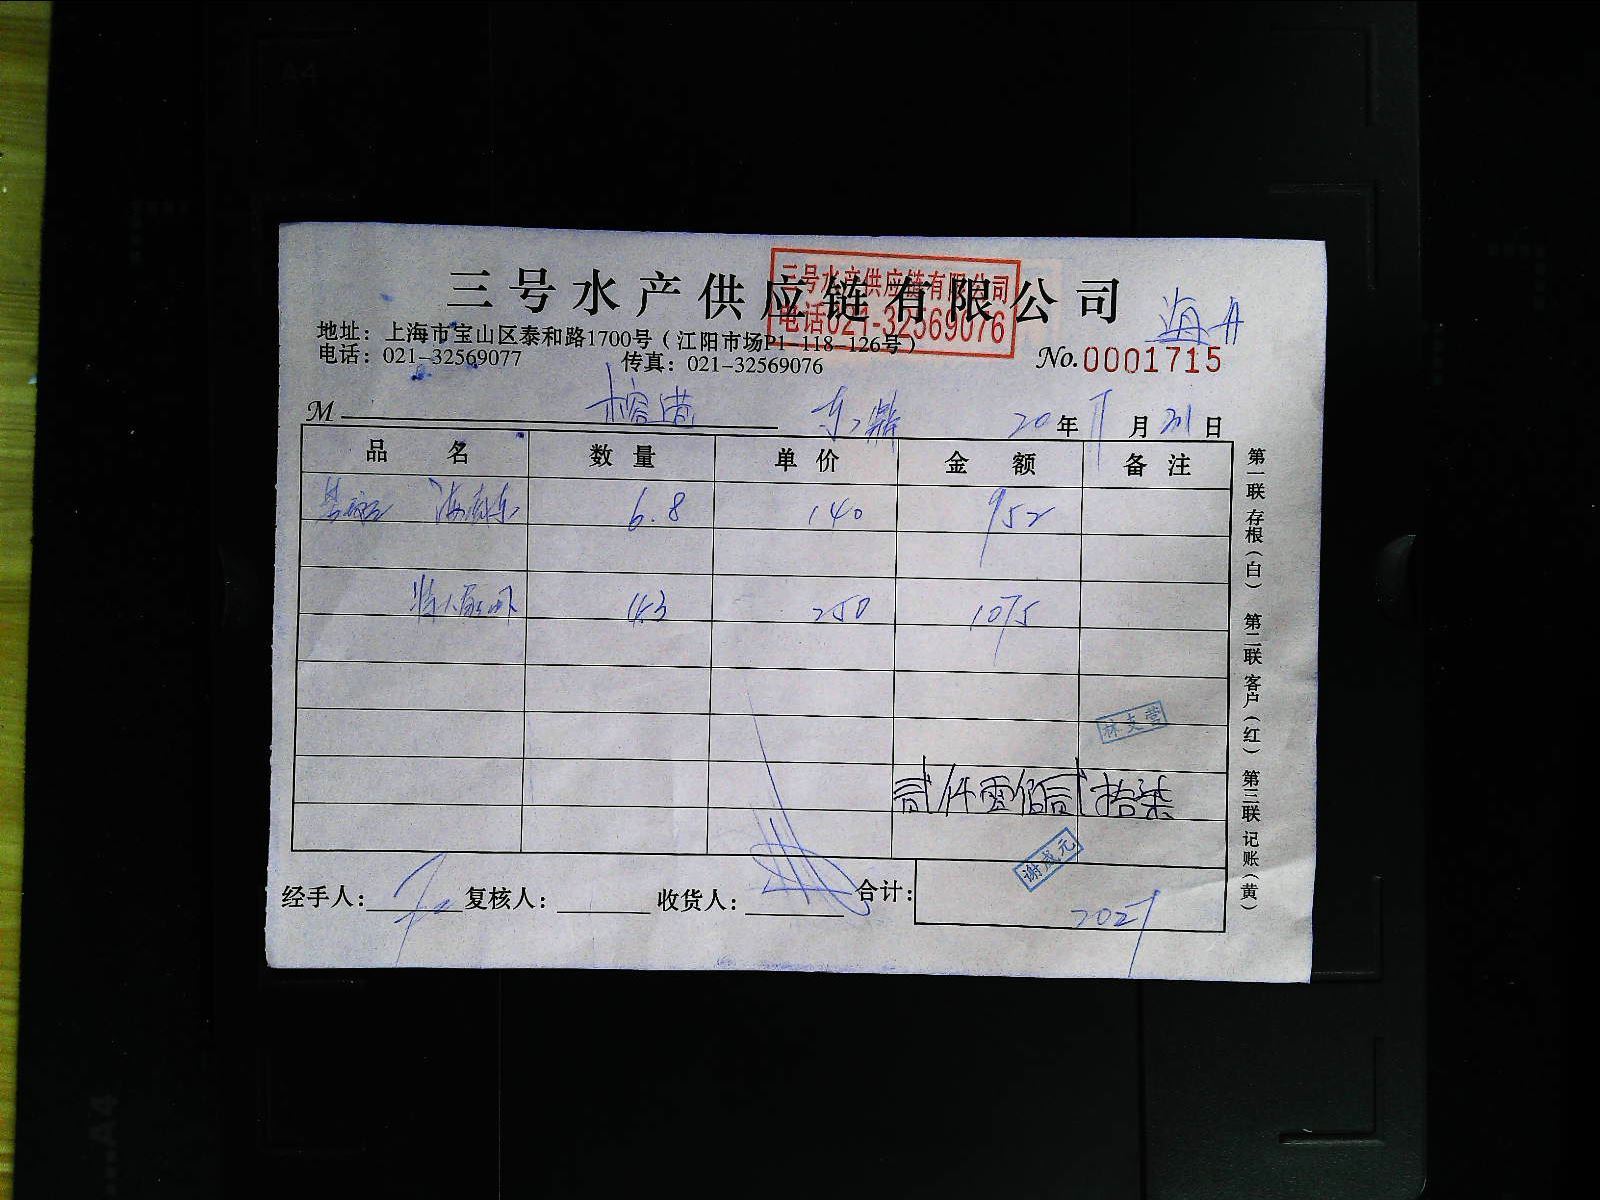 三号水产供应链有限公司
三号水产供应链有限公司
电话021-32569076
地址：上海市宝山区泰和路1700号（江阳市场P1-118-126号）
电话：021-32569077 传真：021-32569076
No.0001715
M 榕港 20年 月 日
品名 数量 单价 金额 备注
6.8 140 952
4.3 250 1075
林支营
贰仟零佰贰拾柒
谢成元
经手人： 复核人： 收货人： 合计： 2027
第一联 存根（白） 第二联 客户（红） 第三联 记账（黄）